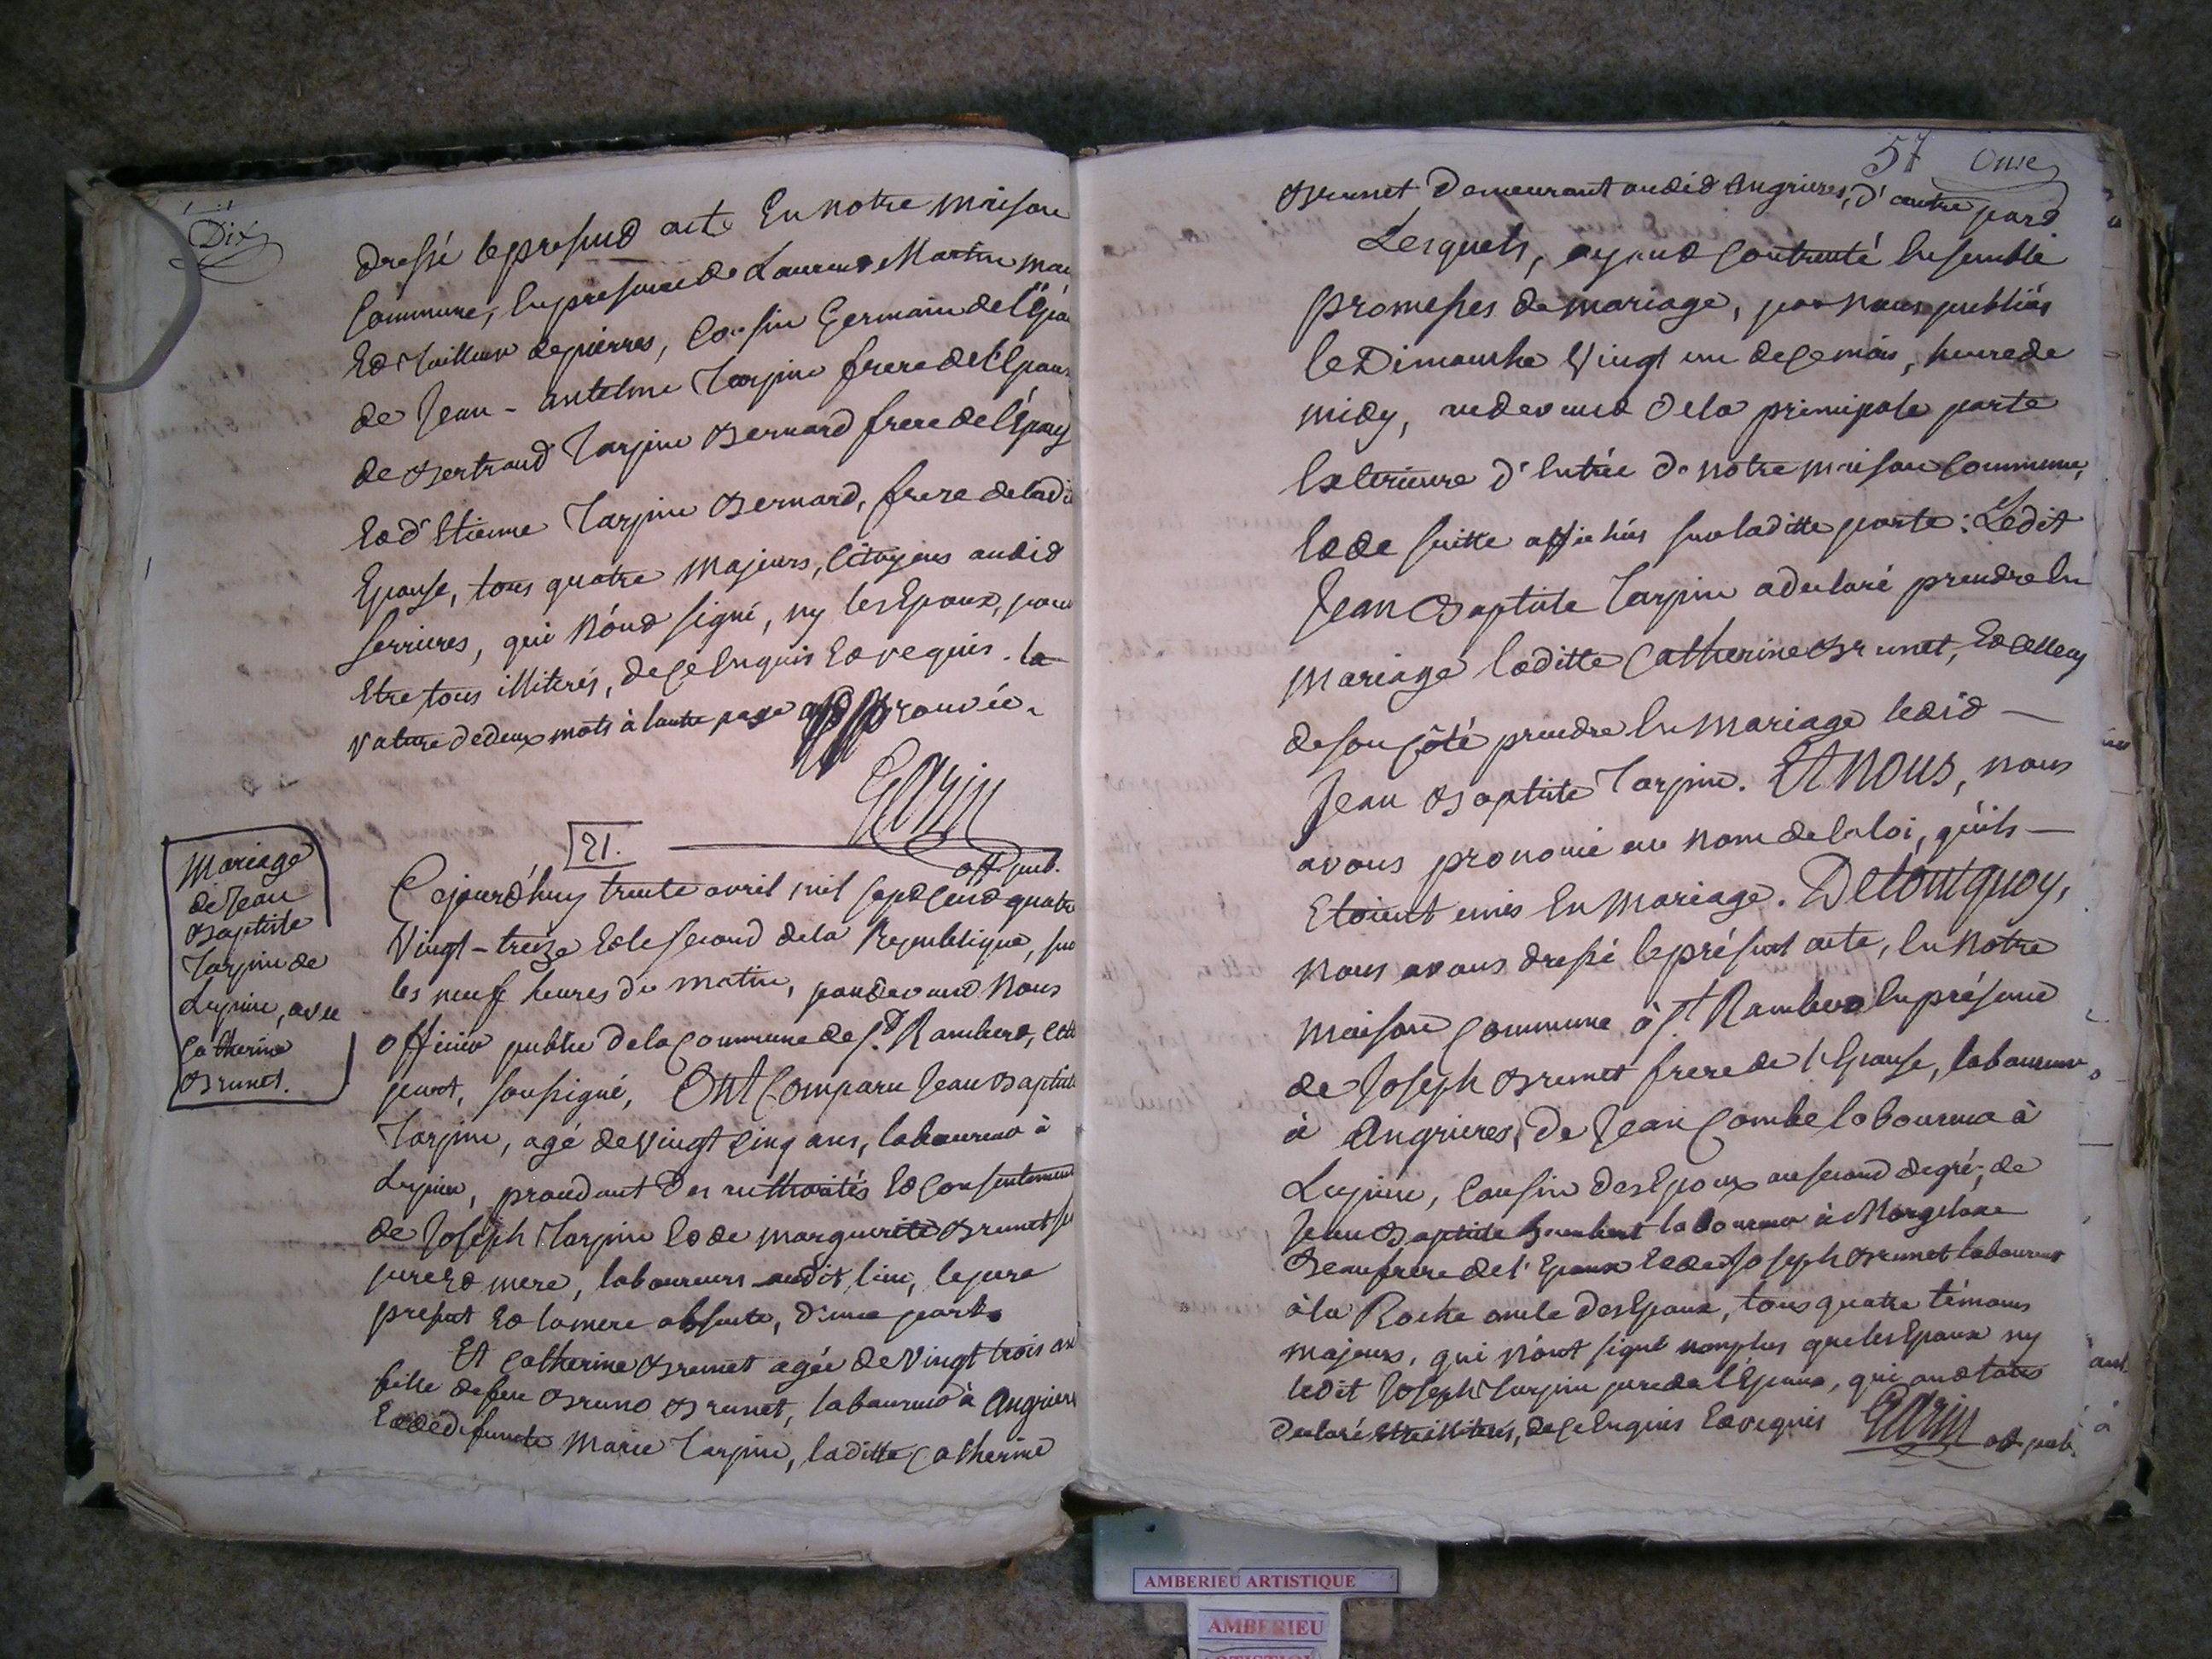 Dix
dressé le present acte En notre maison
Commune, En presence de Laurent Martin
Et tailleur de pierres, Cousin Germain de l'Epou
de Jean-antelme Tarpin frere de l'Epou
de Bertrand Tarpin Bernard frere de l'Epou
Et d'Etienne Tarpin Bernard, frere de ladi
Epouse, tous quatre majeurs, Citoyens audit
Serrieres, qui n'ont signé, ny les Epoux, pour
Etre tous illiterés, de ce Enquis Et requis. la
rature de deux mots à lautre page approuvée.
Garin
off. pub.
Mariage
de Jean
Baptiste
Tarpin de
Lupieu, avec
Catherine
Brunet.
21.
Cejourd'huy trente avril mil sept cent quatre
Vingt-treize Et le second de la Republique, sur
les neuf heures du matin, pardevant Nous
officier public de la Commune de St. Rambert,
soussigné, Ont Comparu Jean Baptiste
Tarpin, agé de vingt cinq ans, laboureur à
Lupieu, procedant des authorités Et Consentement
de Joseph Tarpin Et de marguerite Brunet ses
pere Et mere, laboureurs audit lieu, le pere
present Et la mere absente, d'une part.
Et Catherine Brunet agée de vingt trois ans
fille de feu Bruno Brunet, laboureur à Angriere
Et de defunte Marie Tarpin, laditte Catherine
57 Onze
Brunet Demeurant audit Angrieres, d'autre part
Lesquels, ayant Contracté Ensemble
promesses de mariage, par Nous publiées
le Dimanche Vingt un de ce mois, heure de
midy, audevant de la principale porte
Exterieure d'Entrée de notre maison Commune,
Et de suitte affichées sur laditte porte: Ledit
Jean Baptiste Tarpin a declaré prendre En
mariage laditte Catherine Brunet, Et Elle
de son côté prendre En Mariage ledit
Jean Baptiste Tarpin. Et NOUS, nous
avons prononcé au nom de la loi, qu'ils
Etoient unis En Mariage. De tout quoy,
nous avons dressé le présent acte, En notre
maison Commune à St Rambert En présence
de Joseph Brunet frere de l'Epouse, laboureur
à Angrieres, de Jean Combe laboureur à
Lupieu, Cousin des Epoux au second degré; de
Jean Baptiste humbert laboureur à Morgelaz
Beaufrere de l'Epoux Et de Joseph Brunet laboureur
à la Roche oncle des Epoux, tous quatre témoins
majeurs, qui n'ont signé non plus que les Epoux ny
ledit Joseph Tarpin pere de l'Epoux, qui ont tous
declaré Etre illiterés, de ce Enquis Et requis Garin off. pub.
AMBERIEU ARTISTIQUE
AMBERIEU